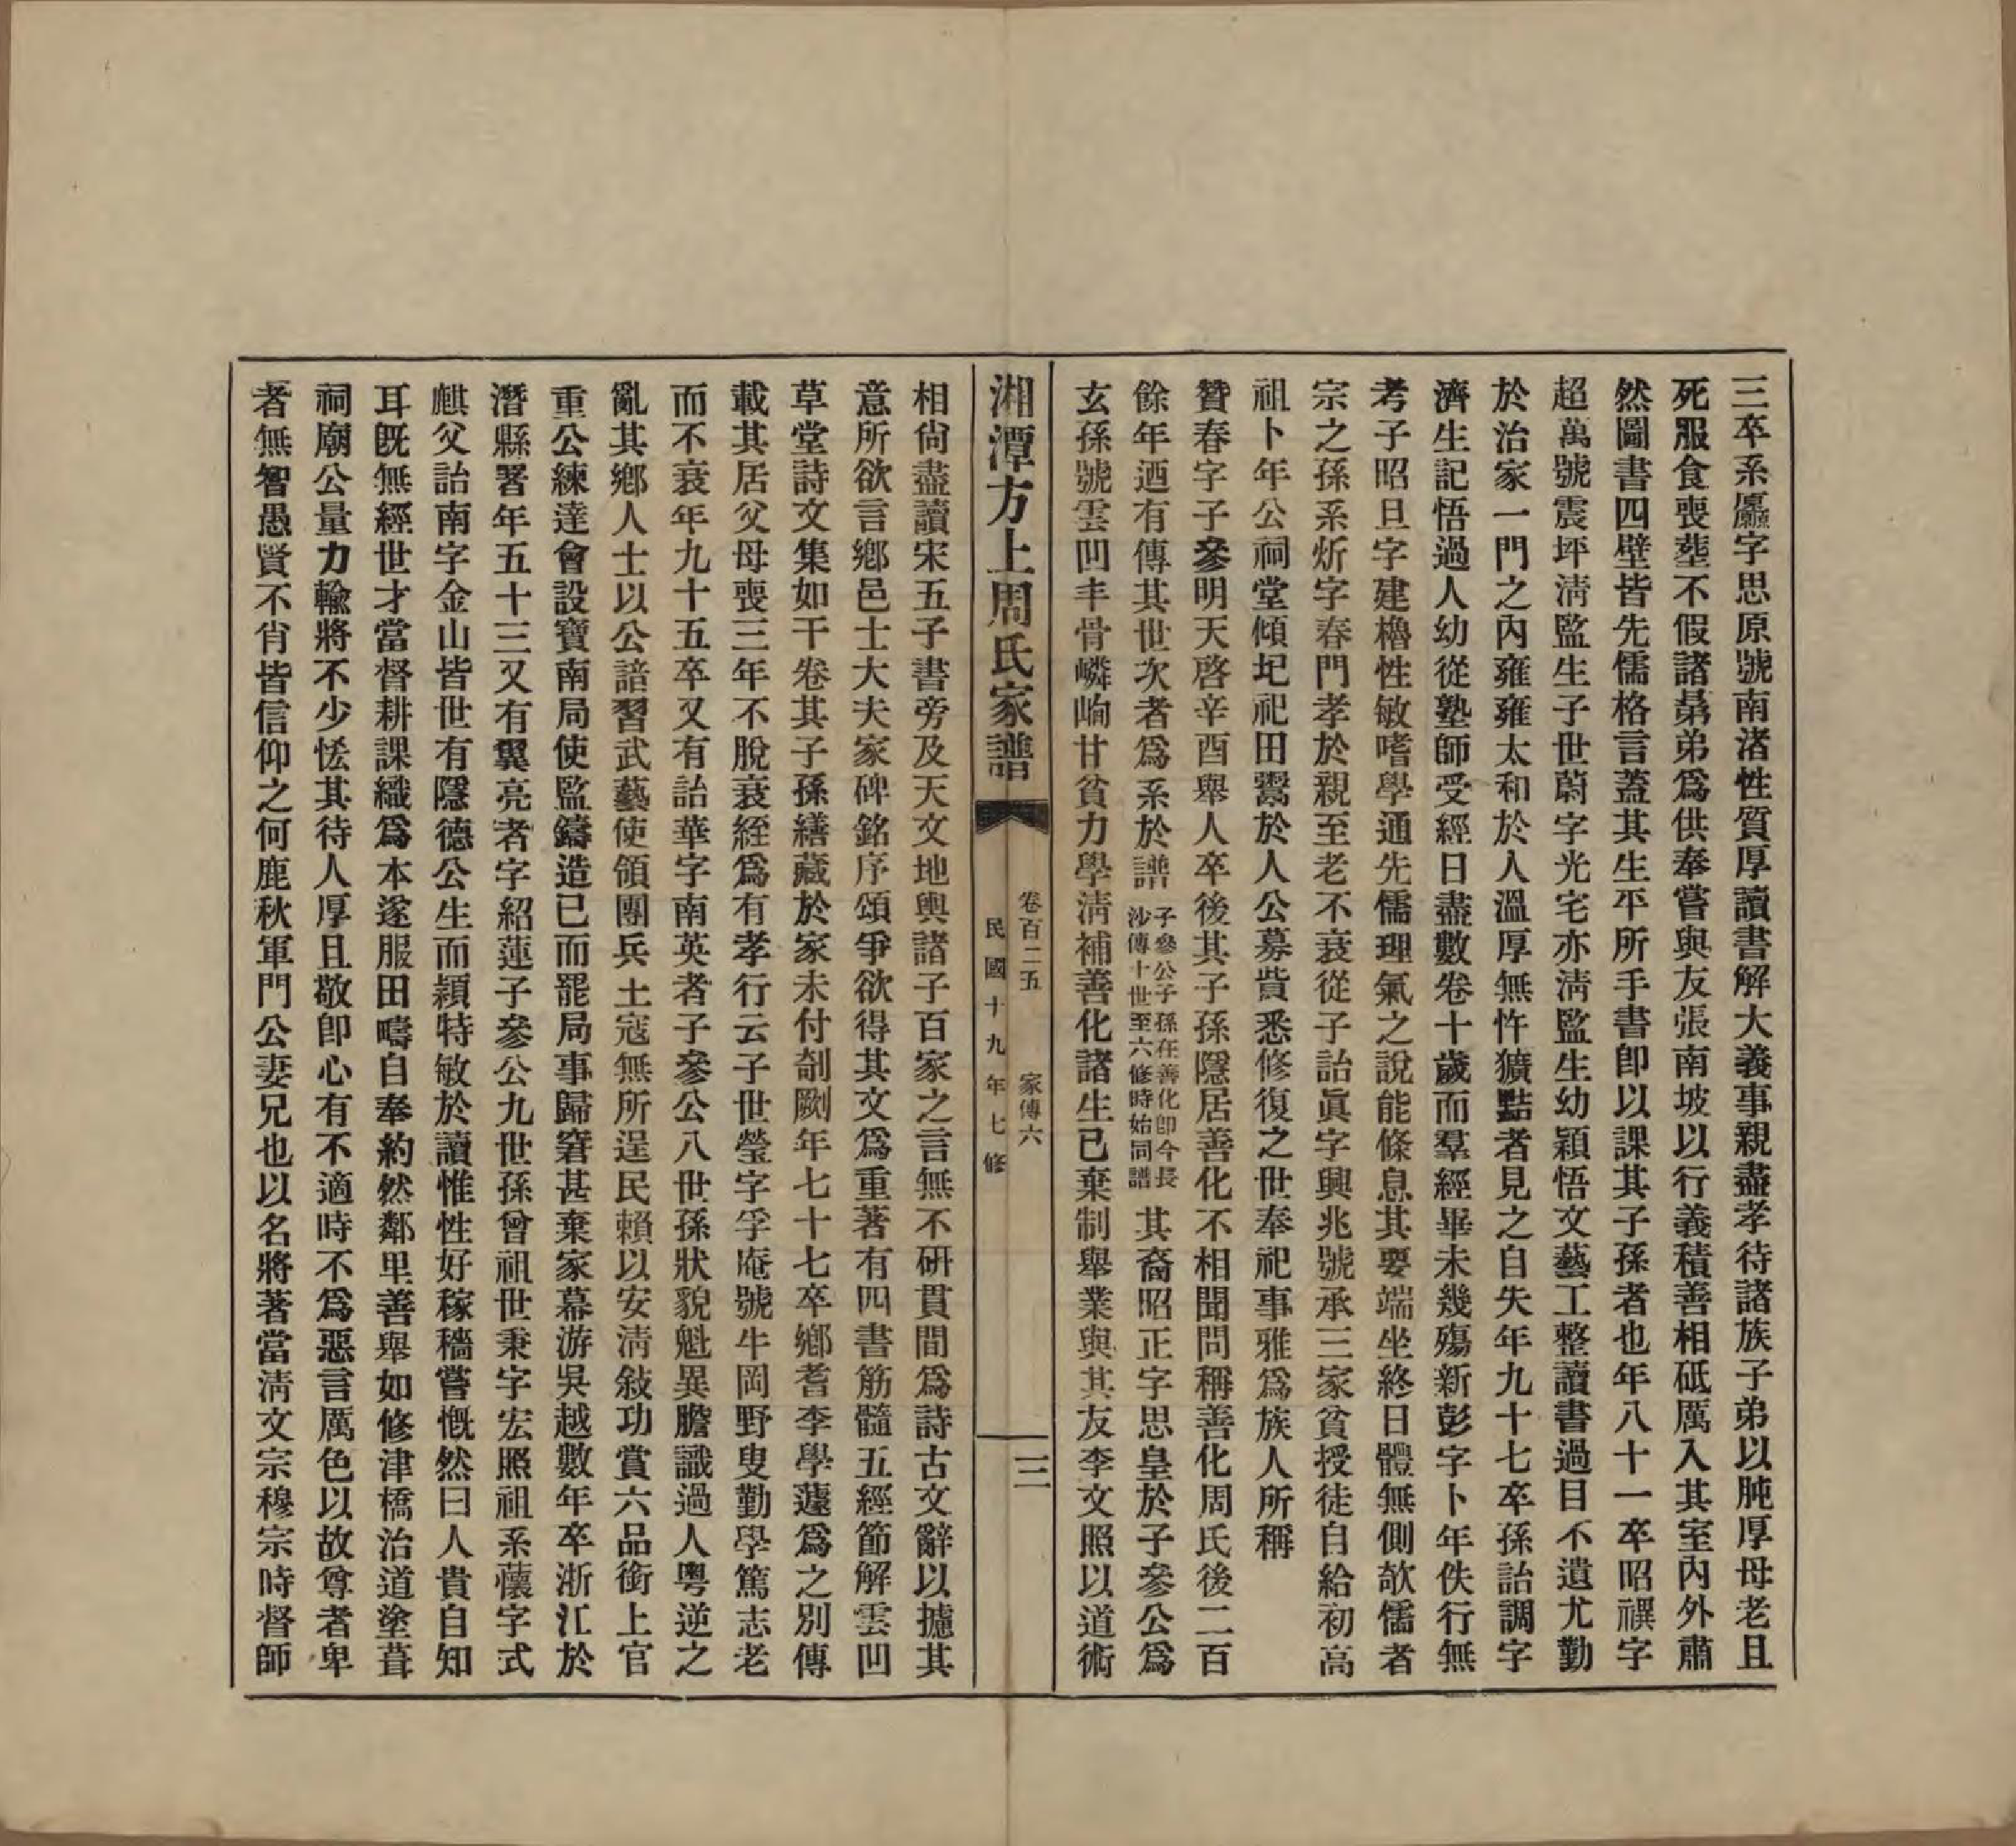 三卒系廬字思原號南渚性質厚讀書解大義事親盡孝待諸族子弟以肫厚母老且
死服食喪塟不假諸晜弟爲供奉嘗與友張南坡以行義積善相砥厲入其室內外肅
然圖書四壁皆先儒格言蓋其生平所手書卽以課其子孫者也年八十一卒昭禩字
超萬號震坪淸監生子世蔚字光宅亦淸監生幼穎悟文藝工整讀書過目不遺尤勤
於治家一門之內雍雍太和於人溫厚無忤獷黠者見之自失年九十七卒孫詒調字
濟生記悟過人幼從塾師受經日盡數卷十歲而羣經畢未幾殤新彭字卜年佚行無
考子昭旦字建櫓性敏嗜學通先儒理氣之說能條息其要端坐終日體無側欹儒者
宗之孫系炘字春門孝於親至老不衰從子詒眞字興兆號承三家貧授徒自給初高
祖卜年公祠堂傾圮祀田鬻於人公募貲悉修復之世奉祀事雅爲族人所稱
贊春字子參明天啓辛酉舉人卒後其子孫隱居善化不相聞問稱善化周氏後二百
餘年迺有傳其世次者爲系於譜子參公子孫在善化卽今長沙傳十世至六修時始同譜其裔昭正字思皇於子參公爲
玄孫號雲凹丰骨嶙峋甘貧力學淸補善化諸生已棄制舉業與其友李文照以道術
湘潭方上周氏家譜
卷百二五 家傳六
三
民國十九年七修
相尙盡讀宋五子書旁及天文地輿諸子百家之言無不硏貫間爲詩古文辭以攄其
意所欲言鄕邑士大夫家碑銘序頌爭欲得其文爲重著有四書筋髓五經節解雲凹
草堂詩文集如干卷其子孫繕藏於家未付剞劂年七十七卒鄕耆李學蘧爲之別傳
載其居父母喪三年不脫衰絰爲有孝行云子世瑩字孚庵號牛岡野叟勤學篤志老
而不衰年九十五卒又有詒華字南英者子參公八世孫狀貌魁異膽識過人粵逆之
亂其鄕人士以公諳習武藝使領團兵土寇無所逞民賴以安淸敍功賞六品銜上官
重公練達會設寶南局使監鑄造已而罷局事歸窘甚棄家幕游吳越數年卒浙江於
潛縣署年五十三又有翼亮者字紹蓮子參公九世孫曾祖世秉字宏照祖系蘹字式
麒父詒南字金山皆世有隱德公生而穎特敏於讀惟性好稼穡嘗慨然曰人貴自知
耳旣無經世才當督耕課織爲本遂服田疇自奉約然鄰里善舉如修津橋治道塗葺
祠廟公量力輸將不少恡其待人厚且敬卽心有不適時不爲惡言厲色以故尊者卑
者無智愚賢不肖皆信仰之何鹿秋軍門公妻兄也以名將著當淸文宗穆宗時督師